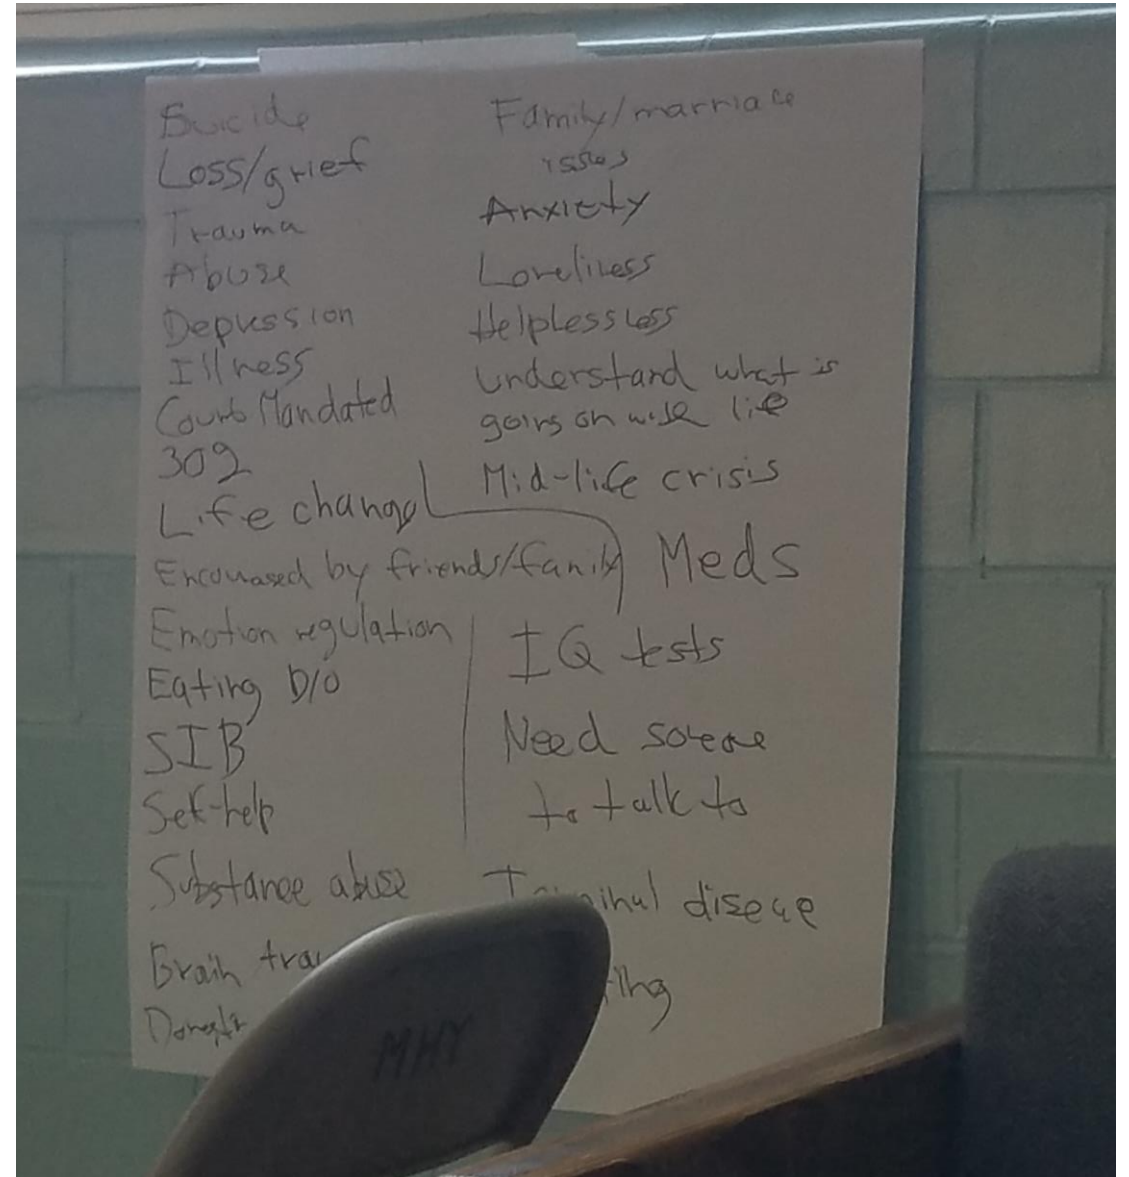 Suicide
Loss/grief
Trauma
Abuse
Depression
Illness
Court Mandated
302
Life change
Encouraged by friends/family
Emotion regulation
Eating D/O
SIB
Self-help
Substance abuse
Brain
Family/marriage
issues
Anxiety
Loneliness
Helplessness
understand what is
going on with life
Mid-life crisis
Meds
IQ tests
Need someone
to talk to
Terminal disease
MHY